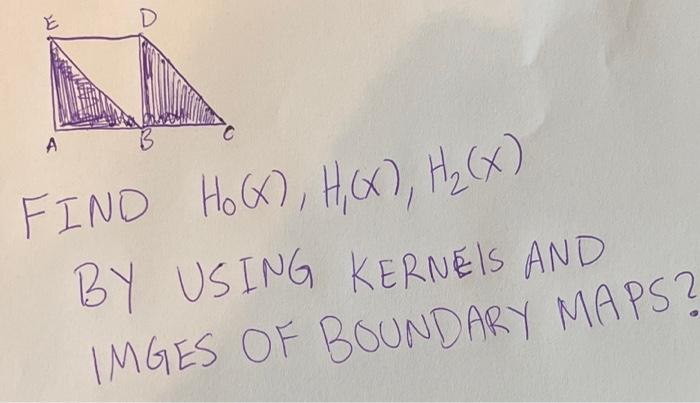 E D
A B C
FIND H₀(X), H₁(X), H₂(X)
BY USING KERNELS AND
IMGES OF BOUNDARY MAPS?